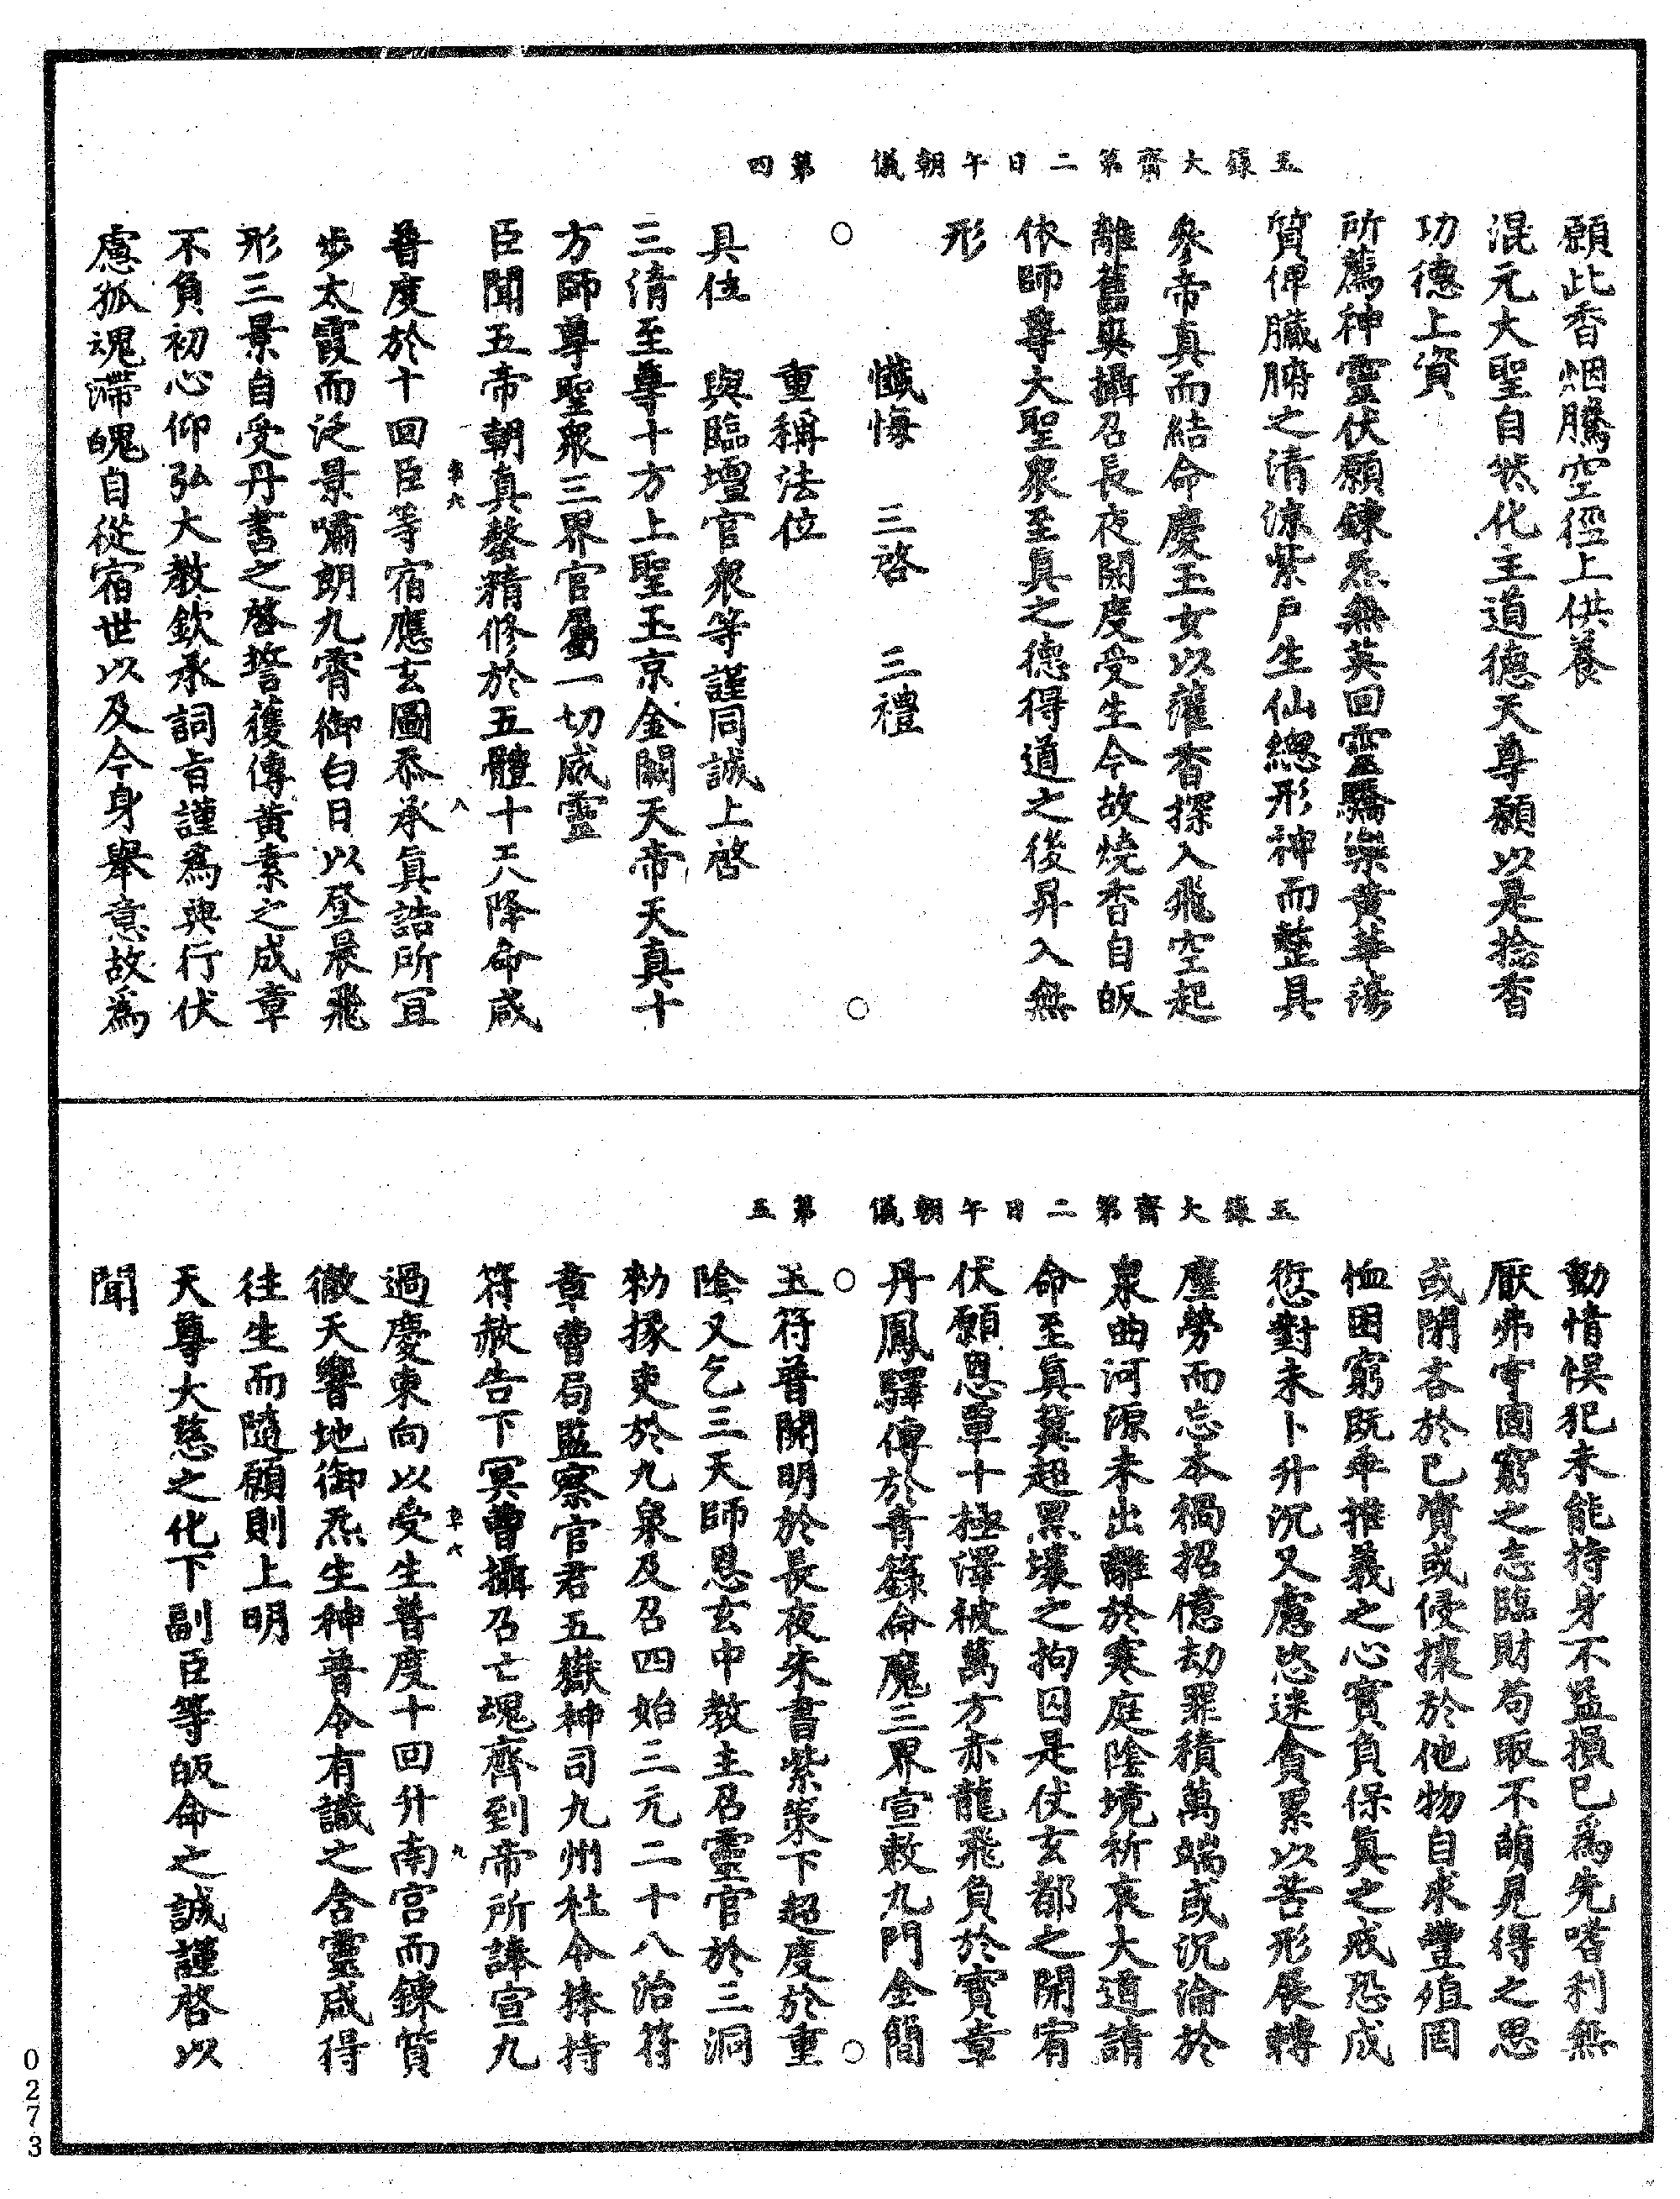 玉籙大齋第二日午朝儀　第四
願此香烟騰空徑上供養
混元大聖自然化主道德天尊願以是捻香
功德上資
所薦神靈伏願鍊炁無英回靈驕崇黃華蕩
質俾臟腑之清涼紫戶生仙總形神而整具
參帝真而結命慶玉女以灌香探入飛空起
離舊與攝召長夜開度受生今故燒香自皈
依師尊大聖衆至真之德得道之後昇入無
形
○　懺悔　三啓　三禮　○
重稱法位
具位　與臨壇官衆等謹同誠上啓
三清至尊十方上聖玉京金闕天帝天真十
方師尊聖衆三界官屬一切威靈
臣聞五帝朝真罄精修於五體十天降命咸
普度於十回臣等宿應玄圖忝承真誥所冝
步太霞而泛景嘯朗九霄御白日以登晨飛
形三景自受丹書之啓誓獲傳黃素之成章
不負初心仰弘大教欽承詞旨謹為興行伏
慮孤魂滯魄自從宿世以及今身舉意故為
章六
八
玉籙大齋第二日午朝儀　第五
動情悮犯未能持身不益損己為先嗜利無
厭弗守固窮之志臨財苟取不萌見得之思
或閉吝於己資或侵攘於他物自求豐殖罔
恤困窮既乖推義之心實負保真之戒恐成
愆對未卜升沉又慮恣迷貪累以苦形展轉
塵勞而忘本禍招億劫罪積萬端或沉淪於
泉曲河源未出離於寒庭陰境祈哀大道請
命至真冀超黑壤之拘囚是仗玄都之開宥
伏願恩覃十極澤被萬方赤龍飛負於寶章
丹鳳驛傳於青籙命魔三界宣敕九門金簡
○　○
玉符普開明於長夜朱書紫策下超度於重
陰又乞三天師恩玄中教主召靈官於三洞
勑掾吏於九泉及召四始三元二十八治符
章曹局監察官君五嶽神司九州社令捧持
符赦告下冥曹攝召亡魂齊到帝所諱宣九
過慶東向以受生普度十回升南宮而鍊質
徹天響地御炁生神普令有識之含靈咸得
往生而隨願則上明
天尊大慈之化下副臣等皈命之誠謹啓以
聞
章六
九
0273